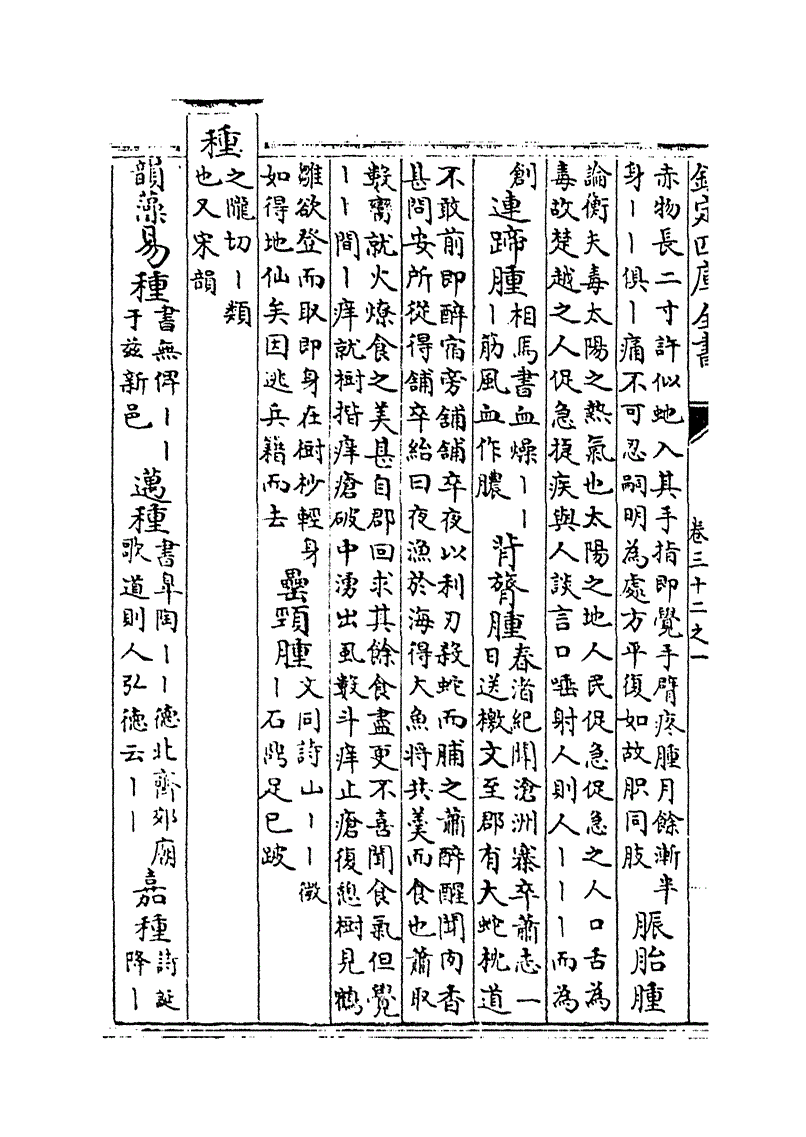 欽定四庫全書
卷三十二之一
赤物長二寸許似虵入其手指即覺手臂疼腫月餘漸半
身丨丨俱丨痛不可忍嗣明為處方平復如故胑同肢
脤胎腫
論衡夫毒太陽之熱氣也太陽之地人民促急促急之人口舌為
毒故楚越之人促急捷疾與人談言口唾射人則人丨丨丨而為
創
連蹄腫
相馬書血燥丨丨
丨筋風血作膿
背膂腫
春渚紀聞滄洲寨卒蕭志一
日送檄文至郡有大蛇枕道
不敢前即醉宿旁舖舖卒夜以利刃殺蛇而脯之蕭醉醒聞肉香
甚問安所從得舖卒紿曰夜漁於海得大魚將共羹而食也蕭取
數臠就火燎食之美甚自郡回求其餘食盡更不喜聞食氣但覺
丨丨間丨痒就樹揩痒瘡破中湧出虱數斗痒止瘡復樹見鶴
雛欲登而取即身在樹杪輕身
如得地仙矣因逃兵籍而去
罍頸腫
文同詩山丨丨微
丨石鼎足已跛
種
之隴切丨類
也又宋韻
韻藻易種
書無俾丨丨
于兹新邑
邁種
書臯陶丨丨德北齊郊廟
歌道則人弘德云丨丨
嘉種
詩誕
降丨